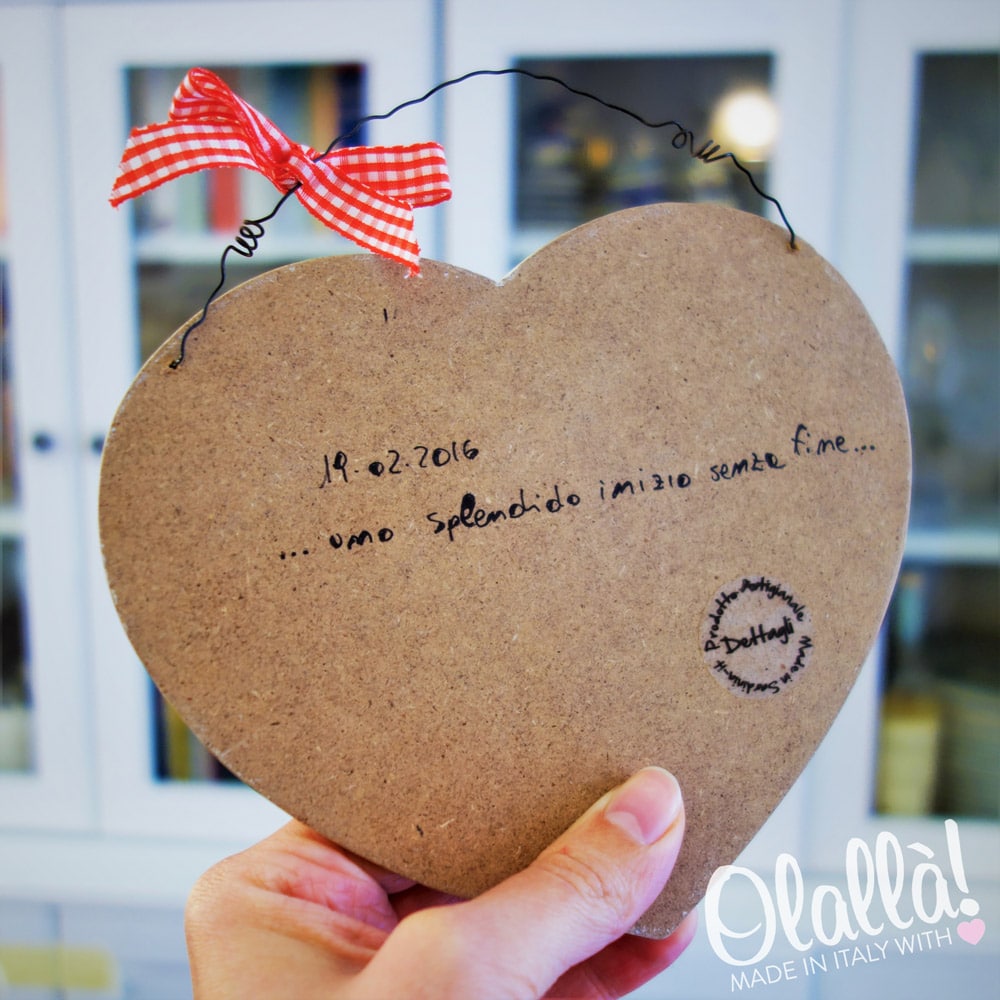 19.02.2016
... uno splendido inizio senza fine...
Prodotto Artigianale
Dettagli
Made in Sardinia-it
Olallà!
MADE IN ITALY WITH